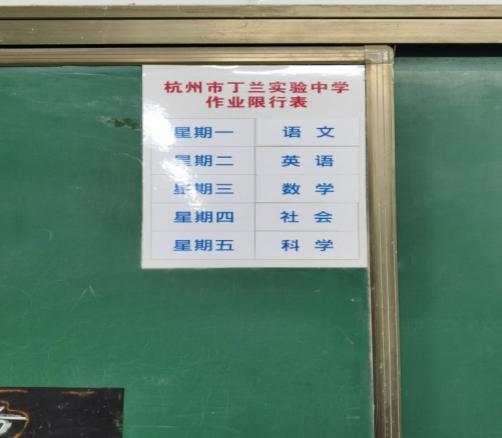 杭州市丁兰实验中学
作业限行表
星期一 语文
星期二 英语
星期三 数学
星期四 社会
星期五 科学